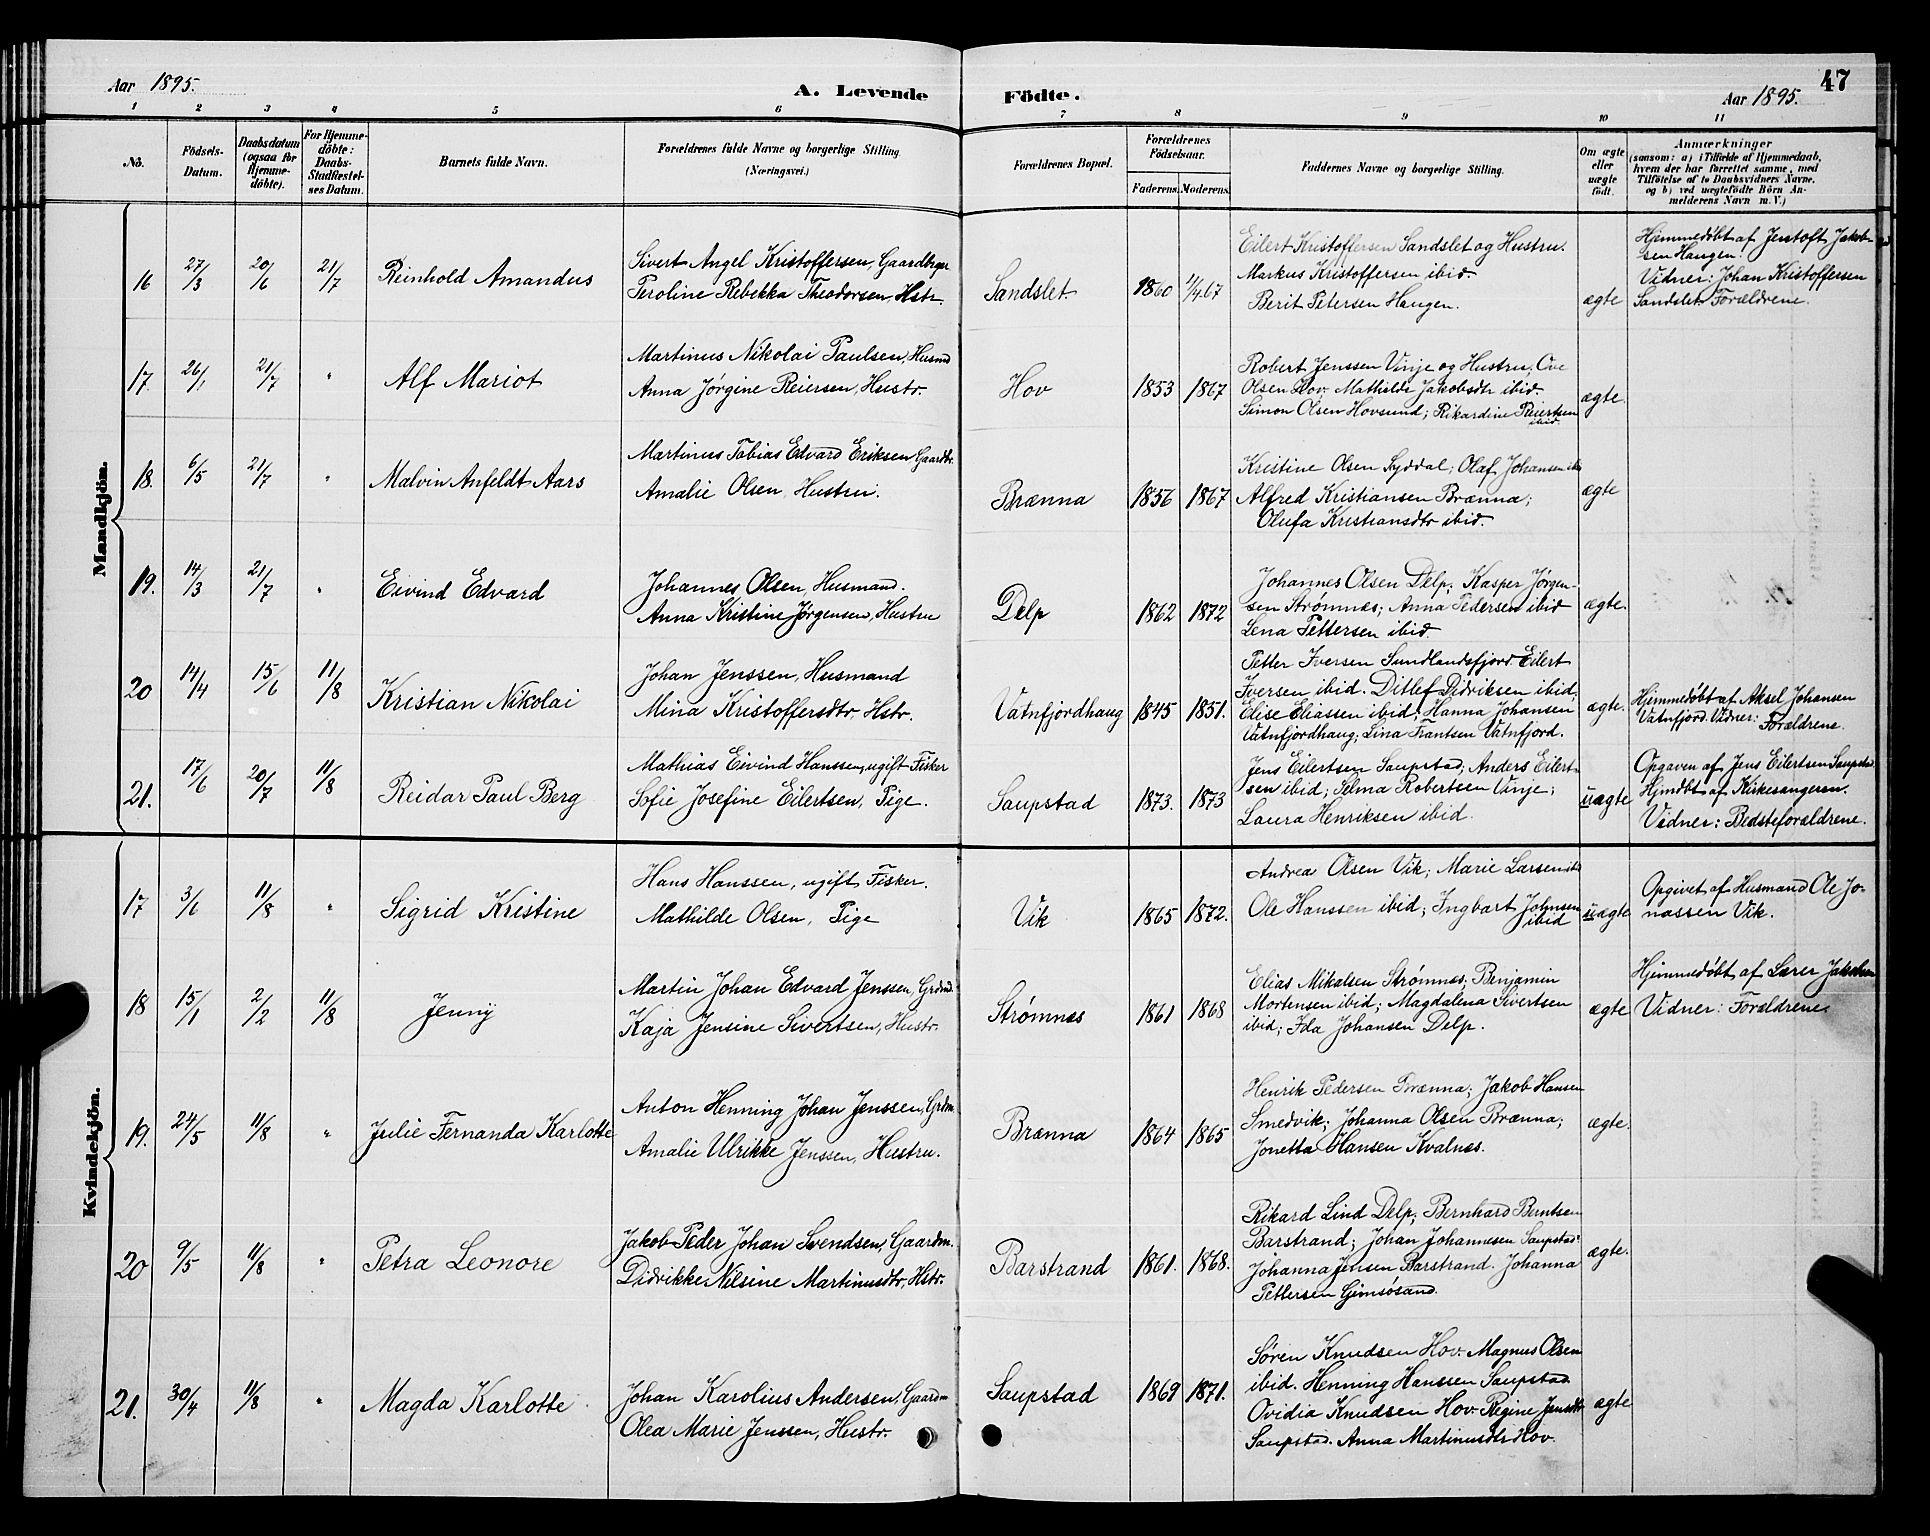 Aar 1895.
A. Levende Födte.
Aar 1895.
47
1 2 3 4 5 6 7 8 9 10 11
No.
Födsels-Datum.
Daabsdatum (ogsaa for Hjemme-döbte).
For Hjemme-döbte: Daabs-Stadfæstel-ses Datum.
Barnets fulde Navn.
Forældrenes fulde Navne og borgerlige Stilling (Næringsvei.)
Forældrenes Bopæl.
Forældrenes Födselsaar.
Faderens. Moderens.
Faddernes Navne og borgerlige Stilling.
Om ægte eller uægte født.
Anmærkninger (saasom: a) i Tilfælde af Hjemmedaab, hvem der har forrettet samme, med Tilföielse af to Daabsvidners Navne, og b) ved uægtefödte Börn An-melderens Navn m. V.)
Mandkjön.
16 27/3 20/6 21/7 Reinhold Amandus
Sivert Angel Kristoffersen, Gaardbruger
Peroline Rebekka Theodorsen, Hstr.
Sandslet 1860 1/4.67
Eilert Kristoffersen Sandslet og Hustru.
Markus Kristoffersen ibid
Berit Petersen Haugen.
ægte
Hjemmedøbt af Jentoft Jakob-
sen Haugen.
Vidner: Johan Kristoffersen
Sandslet. Forældrene.
17. 26/1 21/7 " Alf Mariot
Martinus Nikolai Paulsen, Husmd
Anna Jørgine Reiersen, Hustr.
Hov 1853 1867
Robert Jenssen Vinje og Hustru, Ove
Olsen Hov. Mathilde Jakobsdtr ibid.
Simon Olsen Hovsund; Rikardine Reiertsen
ibid.
ægte.
18. 6/5 21/7 " Malvin Anfeldt Aars
Martinus Tobias Edvard Eriksen Gaardbr.
Amalie Olsen, Hustru.
Brænna 1856 1867
Kristine Olsen Syddal; Olaf Johansen ib
Alfred Kristiansen Brænna;
Olufa Kristiansdtr ibid.
ægte
19. 14/3 21/7 " Eivind Edvard
Johannes Olsen, Husmand.
Anna Kristine Jørgensen, Hustru
Delp 1862 1872
Johannes Olsen Delp; Kasper Jørgen-
sen Strømnæs; Anna Pedersen ibid
Lena Pettersen ibid.
ægte.
20 14/4 15/6 11/8 Kristian Nikolai
Johan Jenssen, Husmand
Mina Kristoffersdtr. Hstr.
Vatnfjordhaug 1845 1851.
Petter Iversen Sundlandsfjord. Eilert
Iversen ibid. Ditlef Didriksen ibid.
Elise Eliassen ibid; Hanna Johansen
Vatnfjordhaug; Lina Frantsen Vatnfjord.
ægte.
Hjemmedøbt af Aksel Johansen
Vatnfjord. Vidner: Forældrene.
21. 17/6 20/7 11/8 Reidar Paul Berg
Mathias Eivind Hanssen, ugift Fisker
Sofie Josefine Eilertsen, Pige.
Saupstad 1873. 1873
Jens Eilertsen Saupstad; Anders Eilert-
sen ibid; Selma Robertsen Vinje;
Laura Henriksen ibid.
uægte
Opgaven af Jens Eilertsen Saupstad
Hjmdbt af Kirkesangeren.
Vidner: Bedsteforældrene.
Kvindekjön.
17 3/6 11/8 " Sigrid Kristine
Hans Hanssen, ugift Fisker.
Mathilde Olsen, Pige
Vik 1865 1872.
Andrea Olsen Vik; Marie Larsen ibd
Ole Hanssen ibid; Ingbart Johnsen
ibid
uægte
Opgivet af Husmand Ole Jo-
nassen Vik.
18 15/1 2/2 11/8 Jenny
Martin Johan Edvard Jenssen, Grdmd.
Kaja Jensine Sivertsen, Hustr.
Strømnæs 1861 1868
Elias Mikalsen Strømnæs; Benjamin
Mortensen ibid; Magdalena Sivertsen
ibid; Ida Johansen Delp.
ægte
Hjemmedøbt af Lærer Jakobsen
Vidner: Forældrene.
19. 24/5 11/8 " Julie Fernanda Karlotte
Anton Henning Johan Jenssen, Grdm.
Amalie Ulrikke Jenssen, Hustru.
Brænna 1864 1865
Henrik Pedersen Brænna; Jakob Hansen
Smedvik; Johanna Olsen Brænna;
Jonetta Hansen Kvalnæs.
ægte.
20 9/5 11/8 " Petra Leonore
Jakob Peder Johan Svendsen, Gaardm.
Didrikke Nilsine Martinusdtr, Hstr.
Barstrand 1861. 1868.
Rikard Lind Delp; Bernhard Berntsen
Barstrand; Johan Johannesen Saupstad.
Johanna Jensen Barstrand. Johanna
Pettersen Gimsøsand.
ægte.
21. 30/4 11/8 " Magda Karlotte
Johan Karolius Andersen, Gaardm
Olea Marie Jenssen, Hustr.
Saupstad 1869 1871.
Søren Knudsen Hov. Magnus Olsen
ibid. Henning Hanssen Saupstad
Ovidia Knudsen Hov. Regine Jensdtr
Saupstad. Anna Martinusdtr Hov.
ægte